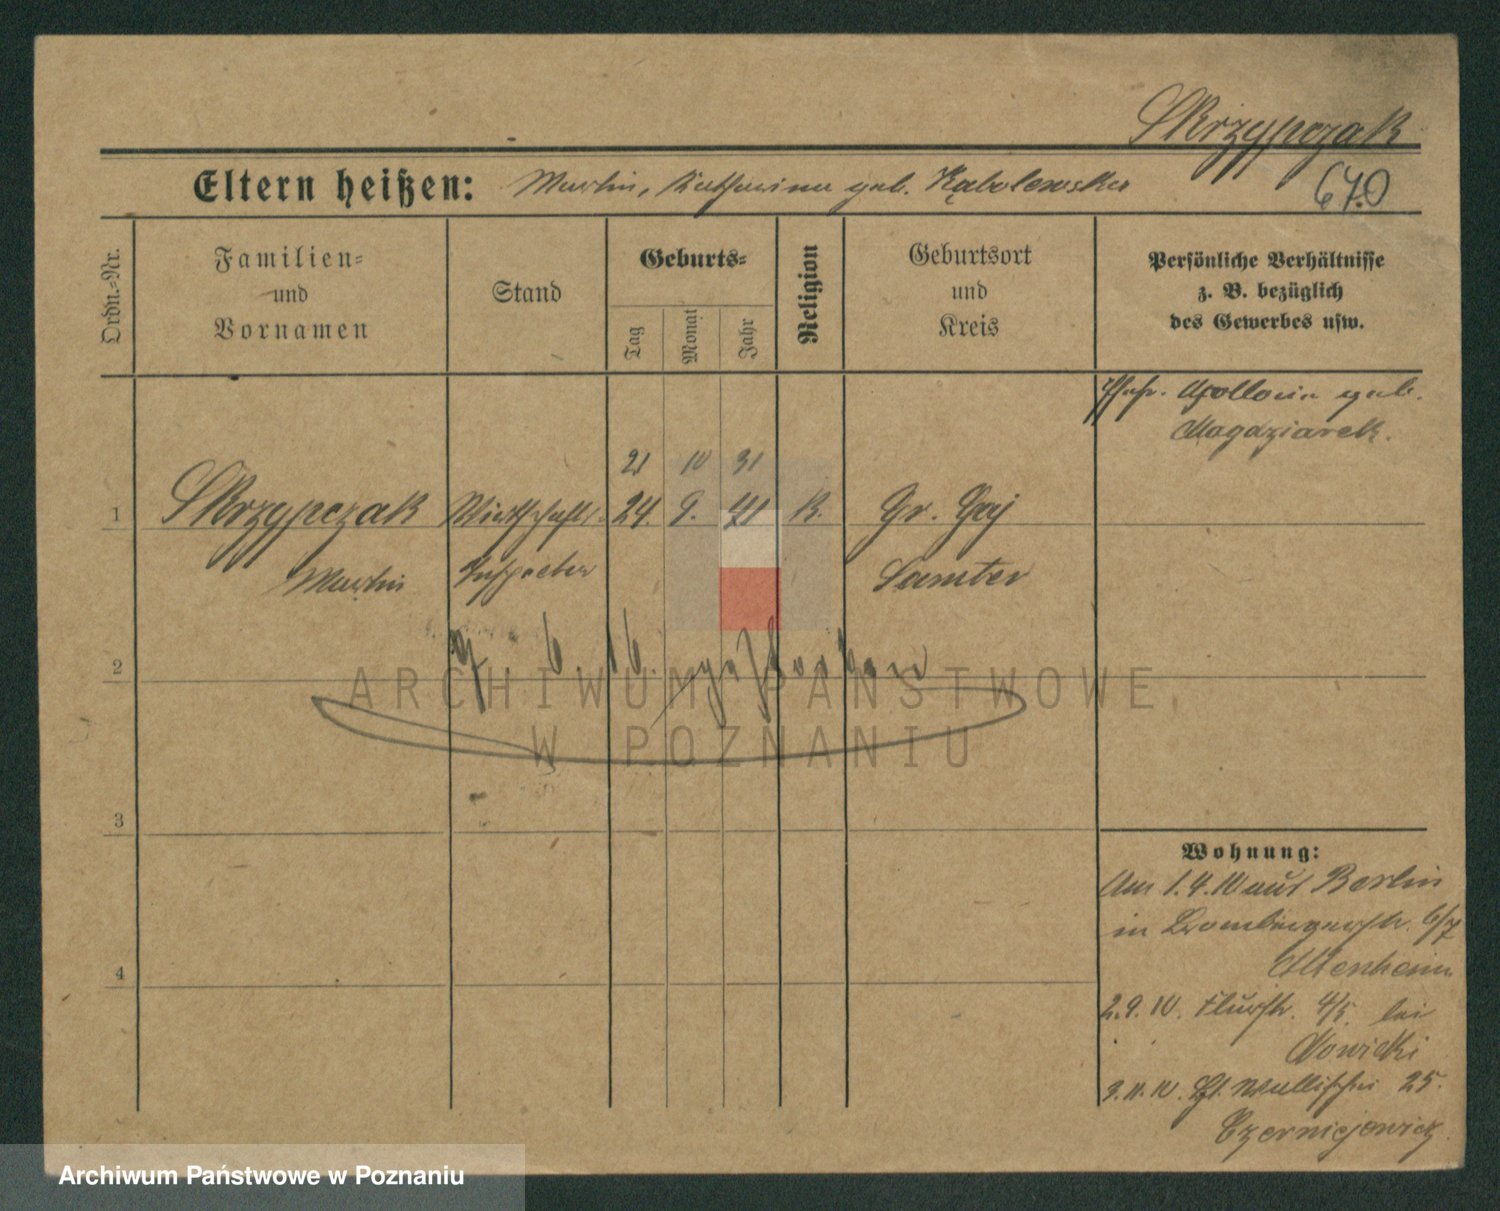 Skrzypczak
Eltern heißen: Martin, Katharina geb. Kąbolewska
670
Ordn.-Nr.
Familien- und Vornamen
Stand
Geburts-
Tag
Monat
Jahr
Religion
Geburtsort und Kreis
Persönliche Verhältnisse
z. B. bezüglich
des Gewerbes usw.
Ehefr. Apollonia geb.
Magdziarek.
21 10 31
1 Skrzypczak Wirthschafts- 24. 9. 41 K. Gr. Gaj
Martin Inspector Samter
2
9. 6. 16. gestorben
3
4
Wohnung:
Am 1.4.10 aus Berlin
in Brombergerstr. 6/7
Altenheim
2.9.10. Flurstr. 4/5. bei
Nowicki
3.11.10. Wallischei 25.
Czerniejewicz
ARCHIWUM PAŃSTWOWE
W POZNANIU
Archiwum Państwowe w Poznaniu